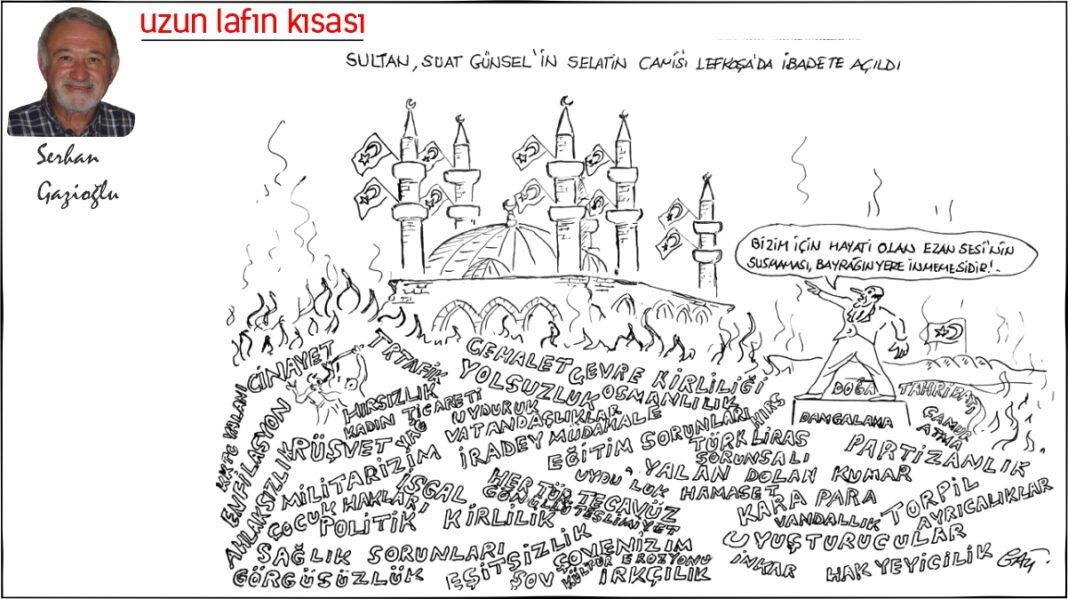 uzun lafın kısası
Serhan
Gazioğlu
SULTAN, SUAT GÜNSEL'İN SELATİN CAMİSİ LEFKOŞA'DA İBADETE AÇILDI
BİZİM İÇİN HAYATİ OLAN EZAN SESİ'NİN
SUSMAMASI, BAYRAĞIN YERE İNMEMESİDİR!
CİNAYET
TRTAFİK
CEHALET
ÇEVRE KİRLİLİĞİ
KKTC YALANI
ENFİLASYON
AHLAKSIZLIK
HIRSIZLIK
KADIN TİCARETİ
YOLSUZLUK
OSMANLILIK
HIRS
DOĞA
TAHRİBATI
DAMGALAMA
ÇAMUR
ATMA
RÜŞVET
YAĞ
UYDURUK
VATANDAÇLIKLAR
İRADEY MÜDAHALE
EĞİTİM SORUNLARI
TÜRK LİRAS
SORUNSALI
PARTİZANLIK
MİLİTARİZİM
İŞGAL
HER TÜR TECAVÜZ
UYDU'LUK
YALAN DOLAN
KUMAR
HAMASET
ÇOCUK HAKLARI
GÖNÜLLÜ TESLİMİYET
KARA PARA
TORPİL
POLİTİK KİRLİLİK
VANDALLIK
AYRICALIKLAR
SAĞLIK SORUNLARI
EŞİTSİZLİK
ŞOVENİZİM
UYUŞTURUCULAR
GÖRGÜSÜZLÜK
ŞOV
KÜLTÜR EROZYONU
IRKÇILIK
İNKAR
HAK YEYİCİLİK
GAZİ